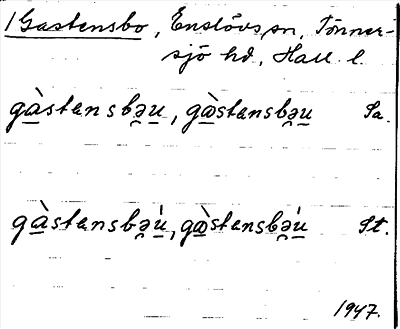 1 Gastensbo, Enslövs sn, Tönner-
sjö hd, Hall. l.
gàstensbə̯u̲, gæ̀stensbə̯u̲ Sa.
gàstensbə̯ú̲, gæ̀stensbə̯ú̲ St.
1947.